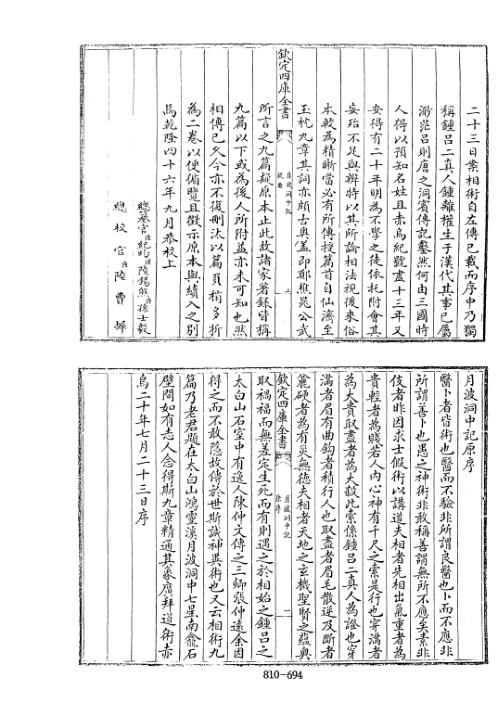 二十三日案相術自左傳已載而序中乃獨
稱鍾呂二真人鍾離權生于漢代其事已屬
渺茫呂則唐之洞賓傳記鑿然何由三國時
人得以預知名姓且赤烏紀號盡十三年又
安得有二十年明為不學之徒依托附會其
妄殆不足與辨特以其所論相法視後來俗
本較為精晰當必有所傳授篇首自仙濟至
玉枕九章其詞亦頗古奧蓋即鄭樵晁公武
欽定四庫全書
月波洞中記
提要
二
所言之九篇疑原本止此故諸家著錄皆稱
九篇以下或為後人所附益亦未可知也然
相傳已久今亦不復刪汰以篇頁稍多折
為二卷以便循覽且徵示原本與續入之別
焉乾隆四十六年九月恭校上
總纂官臣紀昀臣陸錫熊臣孫士毅
總校官臣陸費墀
月波洞中記原序
醫卜者皆術也醫而不驗非所謂良醫也卜而不應非
所謂善卜也愚之神術非敢稱善謂無所不應矣素非
伎者昨因求士假術以講道夫相者先相出氣重者為
貴輕者為賤若人內心神有千尺之索是行也穿滿者
為大貴取盡者為大殺此索係鍾呂二真人為證也穿
滿者眉有曲鈎者積行人也取盡者眉毛散逆及斷者
麄硬者為有災無德夫相者天地之玄機聖賢之蘊奧
欽定四庫全書
月波洞中記
原序
一
取禍福而無差定生死而有則遇之於相始之鍾呂之
太白山石室中有逸人陳仲文傳之三卿張仲遠余因
得之而不敢隱故傳於世斯誠神異術也又云相術九
篇乃老君題在太白山鴻靈溪月波洞中七星南龕石
壁間如有志人念得斯九章精通其象廣拜道術赤
烏二十年七月二十三日序
810-694